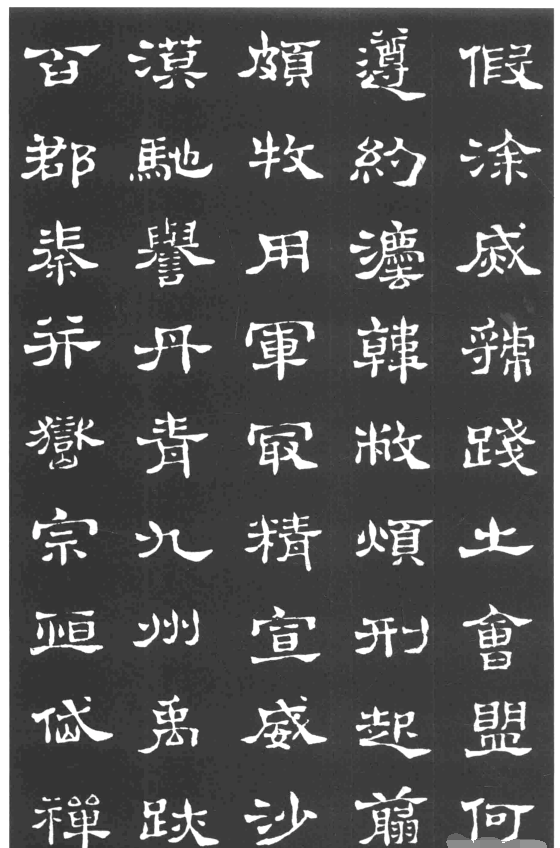 假涂烕虢踐土會盟何
遵約灋韓敝煩刑起翦
頗牧用軍冣精宣威沙
漠馳譽丹青九州禹跡
百郡秦并嶽宗恆岱禪